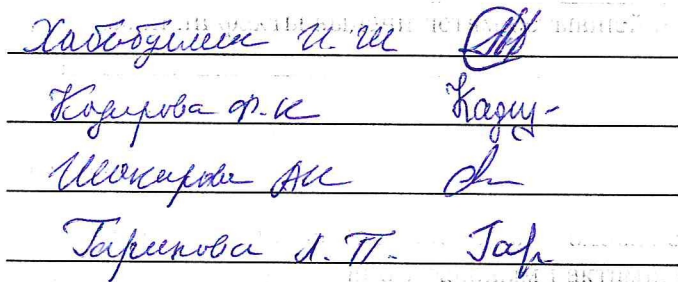 Хабибуллин И. Ш
Кадирова Ф. К Кадир-
Шакирова АК
Гарипова Л. П. Гар